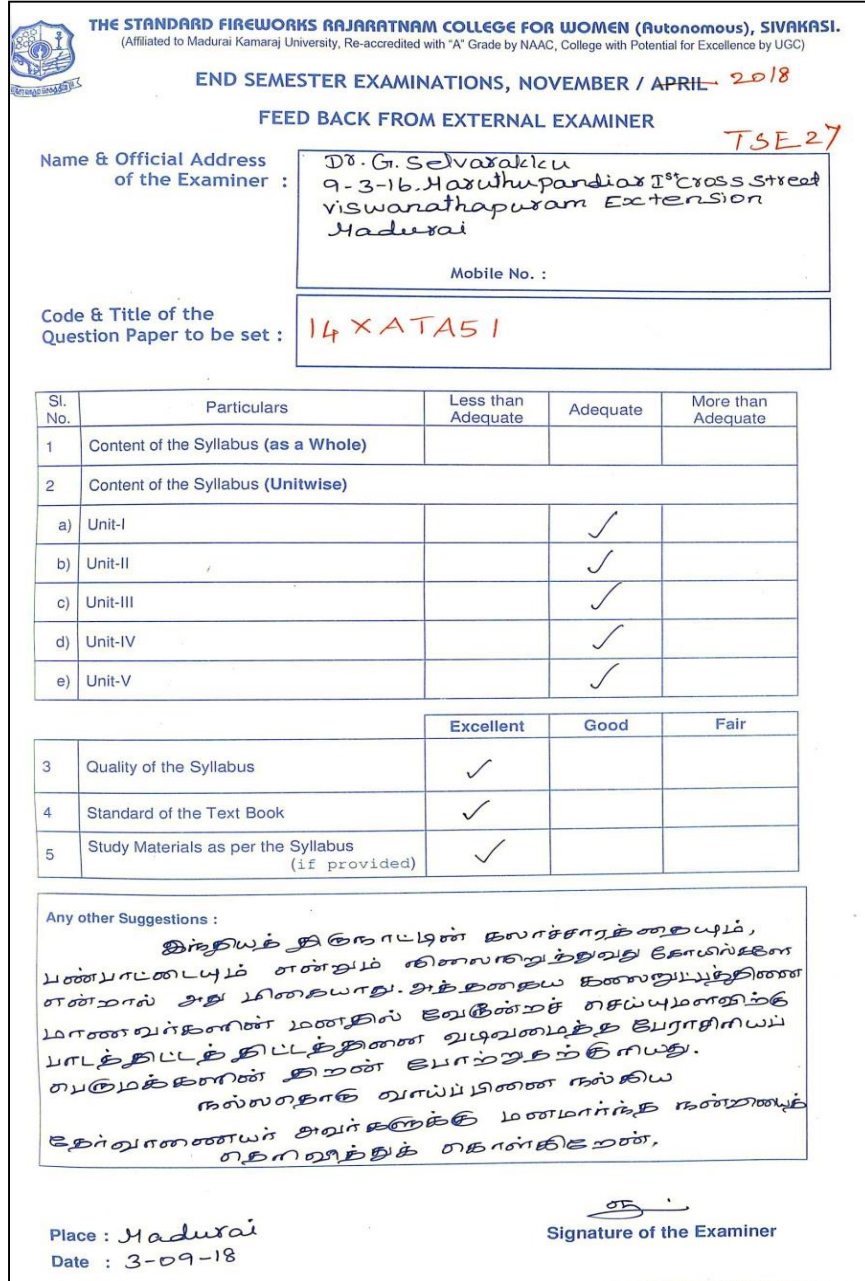 THE STANDARD FIREWORKS RAJARATNAM COLLEGE FOR WOMEN (Autonomous), SIVAKASI.
(Affiliated to Madurai Kamaraj University, Re-accredited with "A" Grade by NAAC, College with Potential for Excellence by UGC)
END SEMESTER EXAMINATIONS, NOVEMBER / APRIL 2018
FEED BACK FROM EXTERNAL EXAMINER
TSE27
Name & Official Address
of the Examiner :
Dr. G. Selvarakku
9-3-16. Maruthupandiar Ist cross street
viswanathapuram Extension
Madurai
Mobile No. :
Code & Title of the
Question Paper to be set :
14XATA51
Sl. No. Particulars Less than Adequate Adequate More than Adequate
1 Content of the Syllabus (as a Whole)
2 Content of the Syllabus (Unitwise)
a) Unit-I ✓
b) Unit-II ✓
c) Unit-III ✓
d) Unit-IV ✓
e) Unit-V ✓
Excellent Good Fair
3 Quality of the Syllabus ✓
4 Standard of the Text Book ✓
5 Study Materials as per the Syllabus ✓
(if provided)
Any other Suggestions :
இந்தியத் திருநாட்டின் கலாச்சாரத்தையும்,
பண்பாட்டையும் என்றும் நிலைநிறுத்துவது கோயில்களே
என்றால் அது மிகையாது. அத்தகைய கலைநுட்பத்தினை
மாணவர்களின் மனதில் வேரூன்றச் செய்யுமளவிற்கு
பாடத்திட்டத் திட்டத்தினை வடிவமைத்த பேராசிரியப்
பெருமக்களின் திறன் போற்றுதற்குரியது.
நல்லதொரு வாய்ப்பினை நல்கிய
தேர்வாணையர் அவர்களுக்கு மனமார்ந்த நன்றியைத்
தெரிவித்துக் கொள்கிறேன்.
Place : Madurai
Date : 3-09-18
Signature of the Examiner